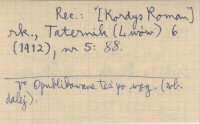 Rec.: "[Kordys Roman]
rk., Taternik (Lwów) 6
(1912), nr 5: 88.
Opublikowane też po węg. (zob.
dalej).